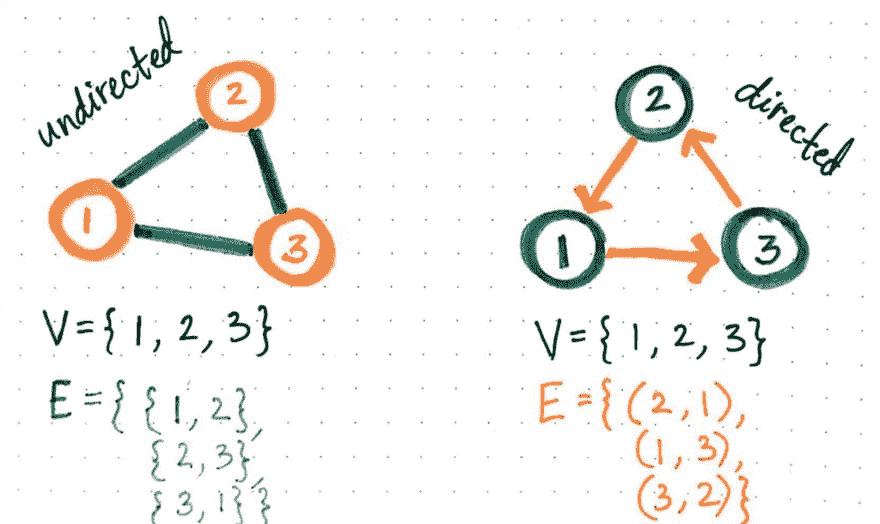 undirected
2
1
3
V={1, 2, 3}
E={ {1, 2},
{2, 3},
{3, 1} }
directed
2
1
3
V={1, 2, 3}
E={(2, 1),
(1, 3),
(3, 2)}